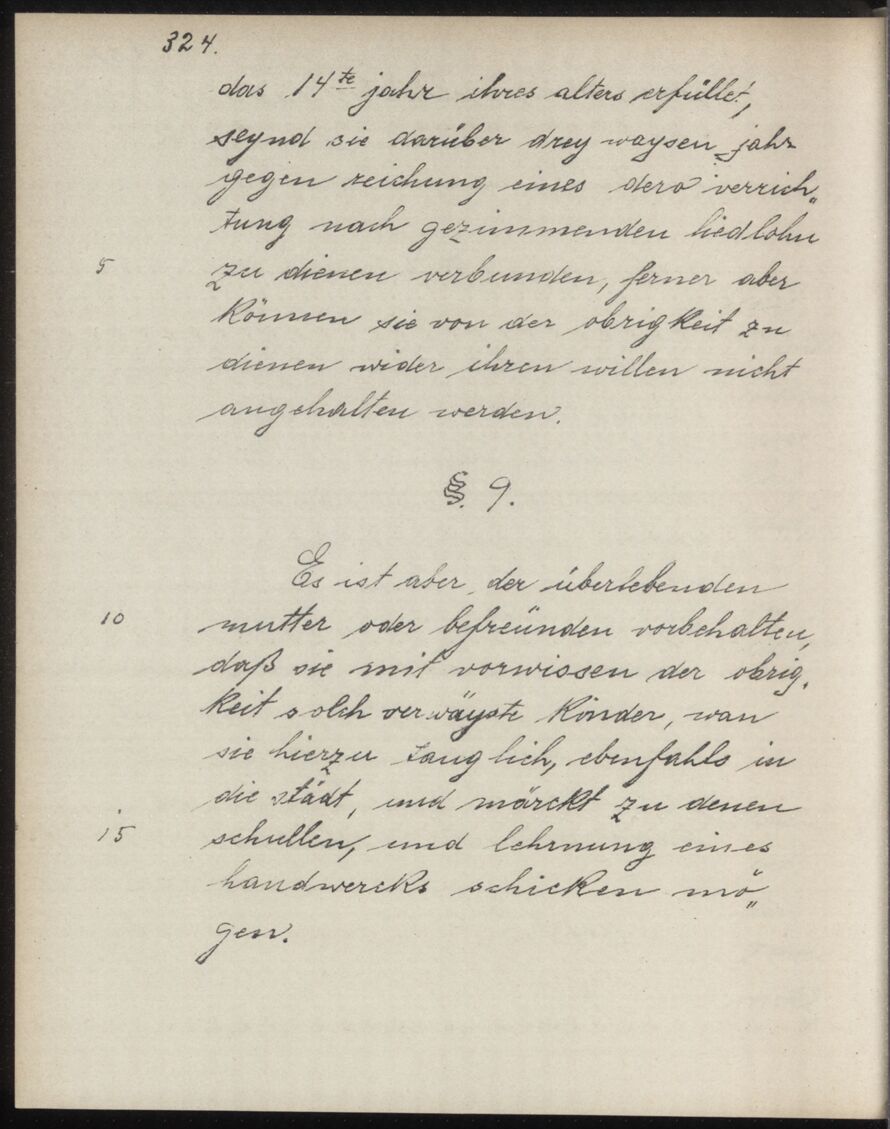 324.
das 14te jahr ihres alters erfüllet,
seynd sie darüber drey waysen-jahr
gegen reichung eines dero verrich„
tung nach gezimmenden liedlohn
5 zu dienen verbunden, ferner aber
können sie von der obrigkeit zu
dienen wider ihren willen nicht
angehalten werden.
§. 9.
Es ist aber der überlebenden
10 mutter oder befreünden vorbehalten,
daß sie mit vorwissen der obrig„
keit solch verwäyste kinder, wan
sie hierzu tauglich, ebenfahls in
die städt, und märckt zu denen
15 schullen, und lehrnung eines
handwercks schicken mö„
gen.